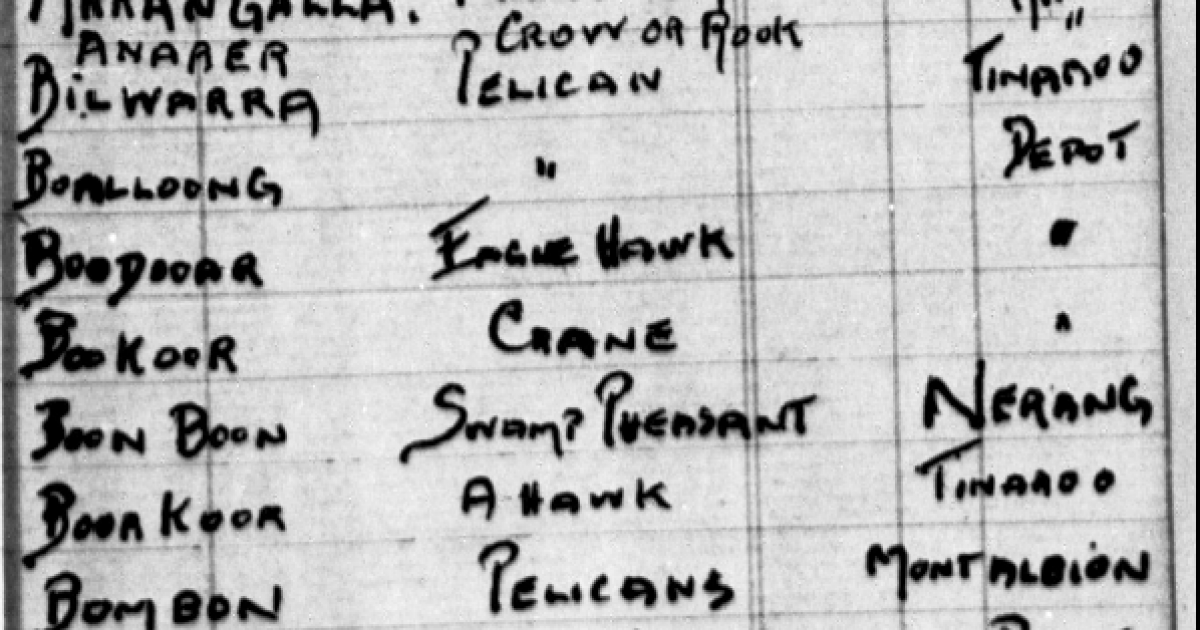 ARRANGALLA.
ANARER CROW OR ROOK "
BILWARRA PELICAN TINAROO
BOALLOONG " DEPOT
BOODOOAR EAGLE HAWK "
BOOKOOR CRANE "
BOON BOON SWAMP PHEASANT NERANG
BOORKOOR A HAWK TINAROO
BOMBON PELICANS MONTALBION